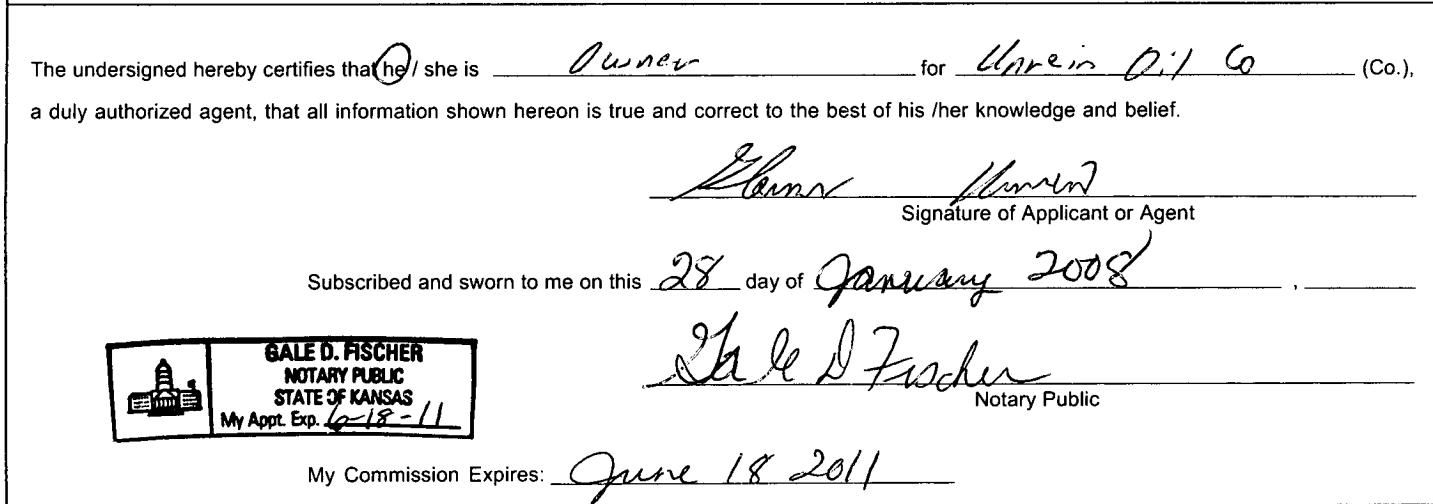 The undersigned hereby certifies that he / she is Owner for Unrein Oil Co (Co.),
a duly authorized agent, that all information shown hereon is true and correct to the best of his /her knowledge and belief.
Unrein
Signature of Applicant or Agent
Subscribed and sworn to me on this 28 day of January 2008 ,
GALE D. FISCHER
NOTARY PUBLIC
STATE OF KANSAS
My Appt. Exp. 6-18-11
Gale D Fischer
Notary Public
My Commission Expires: June 18 2011